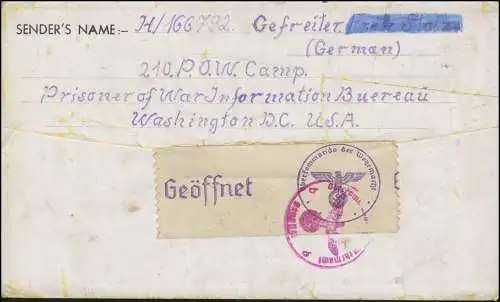 SENDER'S NAME:- H/166792. Gefreiter
(German)
210.P.O.W.Camp.
Prisoner of War Information Buereau
Washington D.C. U.S.A.
Geöffnet
Oberkommando der Wehrmacht